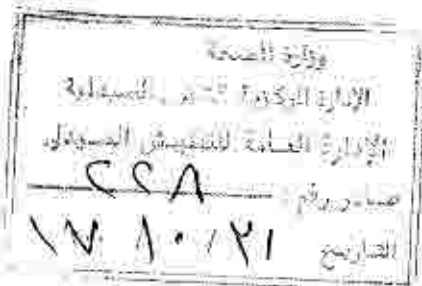 وزارة الصحة
الإدارة المركزية للشئون الصيدلية
الإدارة العامة للتفتيش الصيدلي
صادر رقم ٢٢٨
التاريخ ٢١ / ١٠ / ١٧